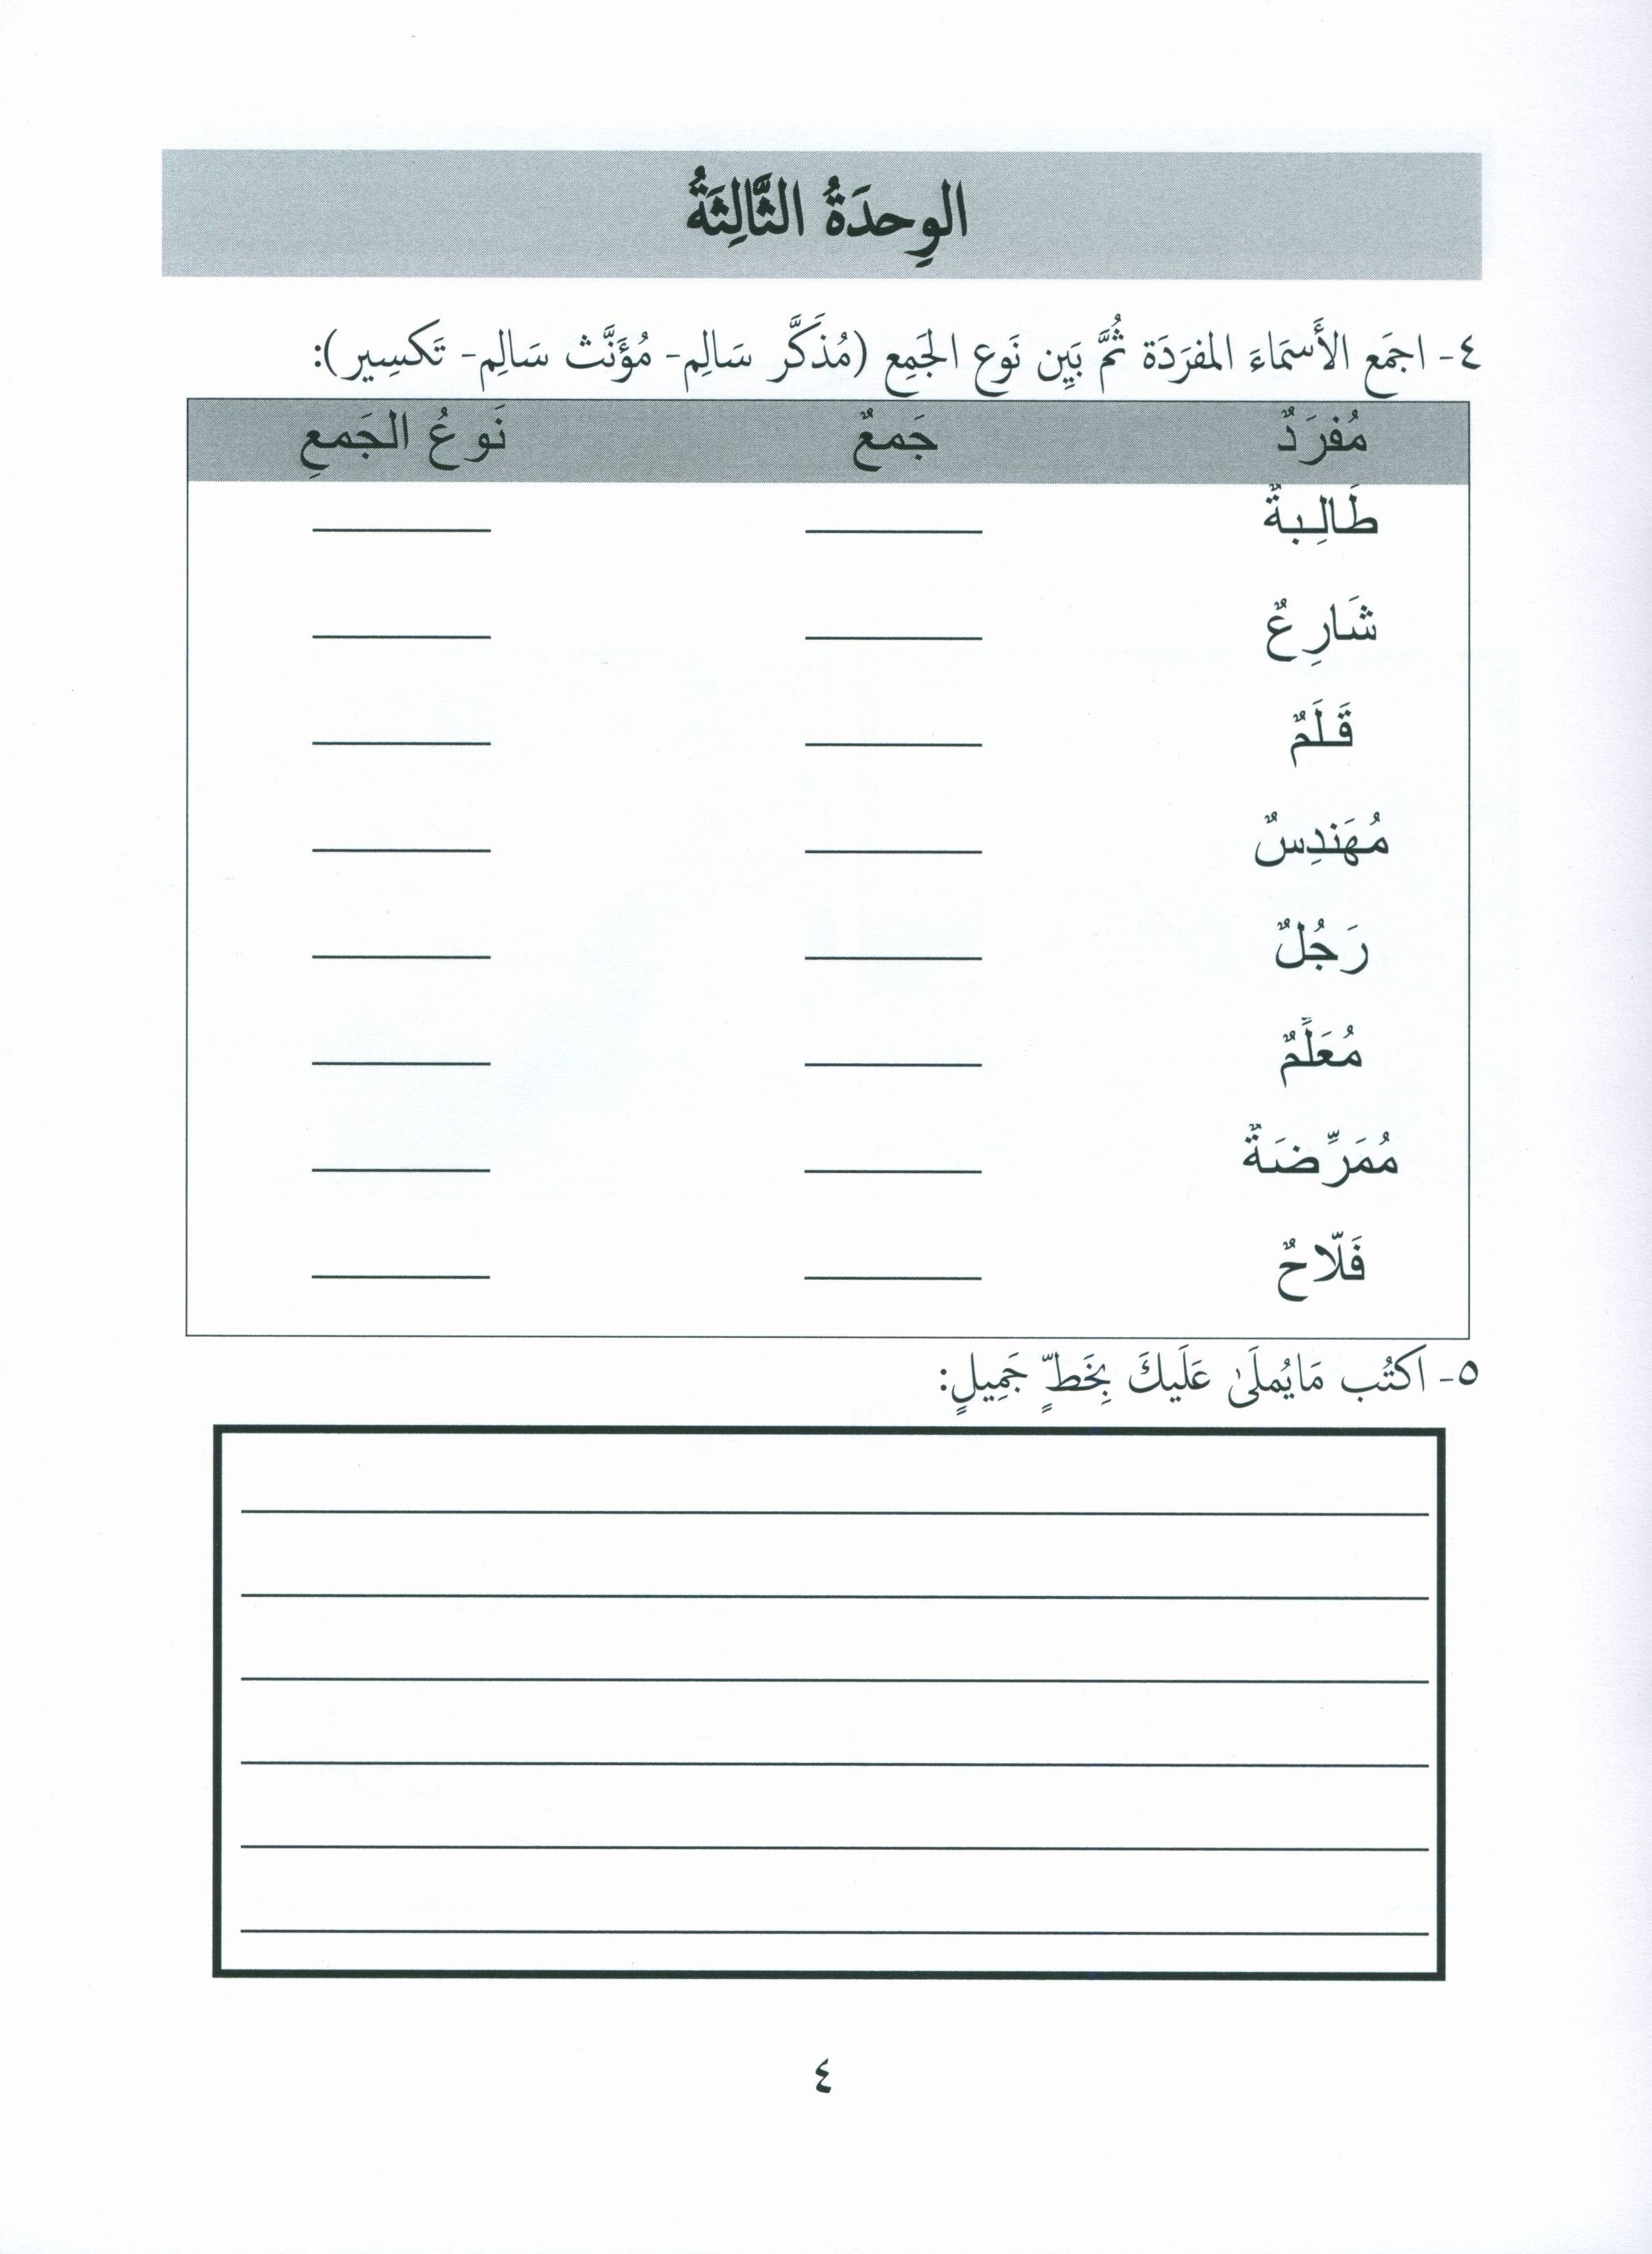 الوِحدَةُ الثَّالِثَةُ
٤- اجمَع الأَسمَاءَ المفرَدَة ثُمَّ بَيِن نَوع الجَمِع (مُذَكَّر سَالِم- مُؤَنَّث سَالِم- تَكسِير):
مُفرَدٌ جَمعٌ نَوعُ الجَمعِ
طَالِبةٌ
شَارِعٌ
قَلَمٌ
مُهَندِسٌ
رَجُلٌ
مُعَلَّمٌ
مُمَرِّضَةٌ
فَلّاحٌ
٥- اكتُب مَايُملَىٰ عَلَيكَ بِخَطٍّ جَمِيلٍ:
٤